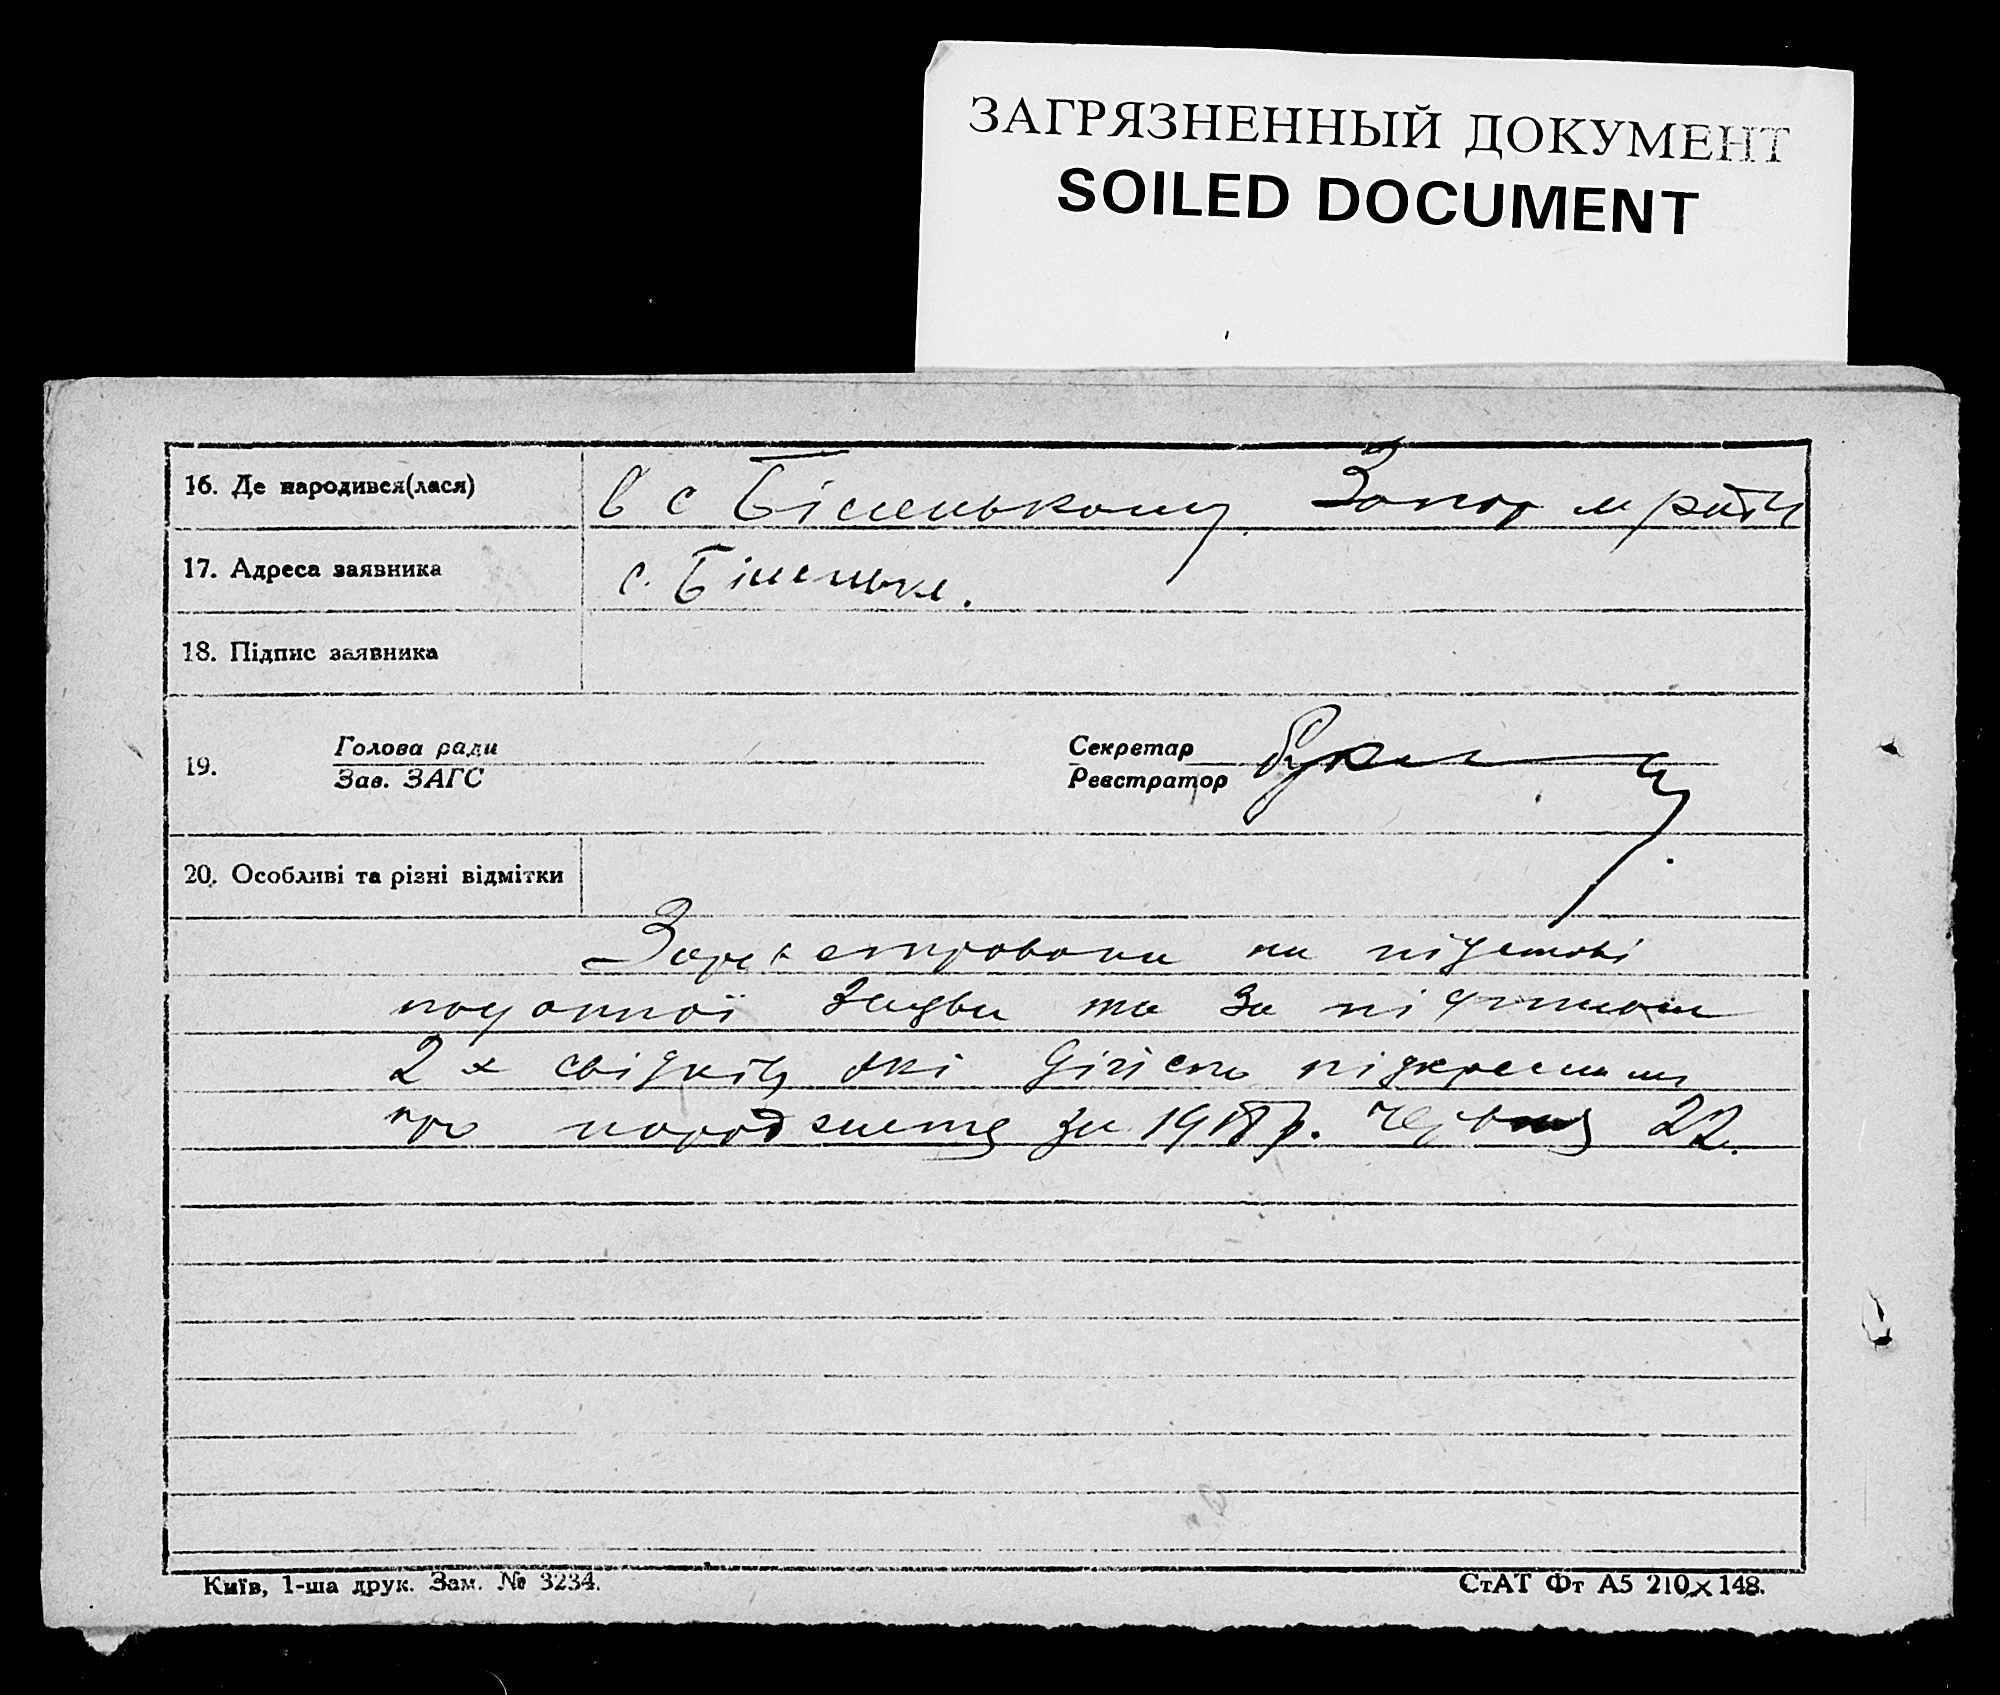 ЗАГРЯЗНЕННЫЙ ДОКУМЕНТ
SOILED DOCUMENT
16. Де народився(лася) в с Біленькому Запор
17. Адреса заявника с. Біленьке.
18. Підпис заявника
19. Голова ради Секретар
Зав. ЗАГС Реєстратор
20. Особливі та різні відмітки
на підставі
поданної заяви та за
2 х свідків які дійсно
про народження за 1918 р. червня 22.
Київ, 1-ша друк. Зам. № 3234.
СтАТ Фт А5 210×148.